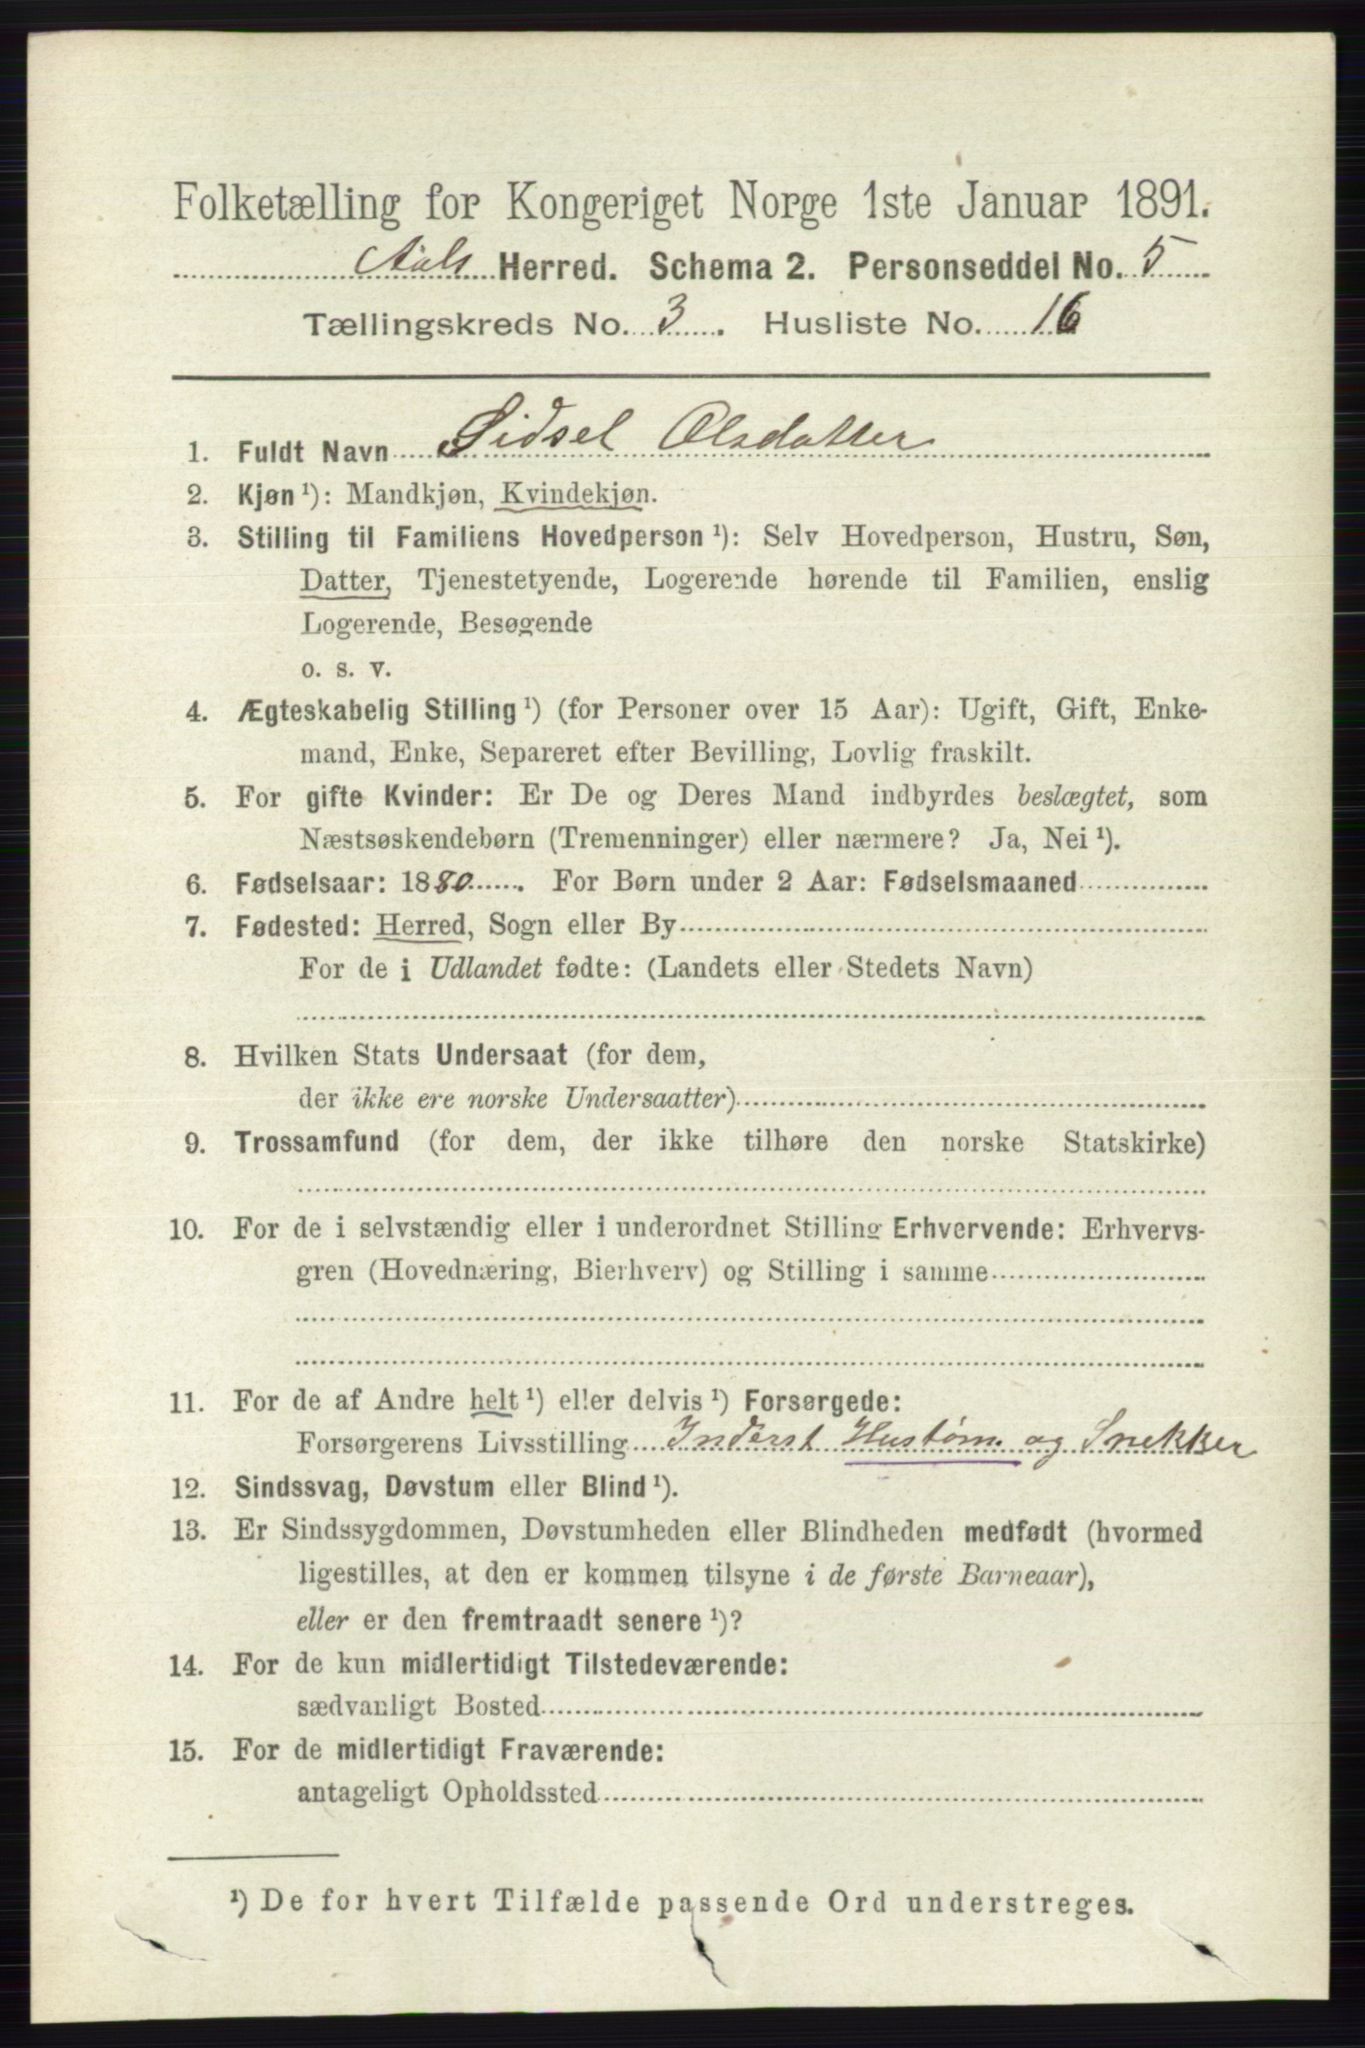 Folketælling for Kongeriget Norge 1ste Januar 1891.
Aals Herred. Schema 2. Personseddel No. 5
Tællingskreds No. 3. Husliste No. 16
1. Fuldt Navn Sidsel Olsdatter
2. Kjøn ¹): Mandkjøn, Kvindekjøn.
3. Stilling til Familiens Hovedperson ¹): Selv Hovedperson, Hustru, Søn,
Datter, Tjenestetyende, Logerende hørende til Familien, enslig
Logerende, Besøgende
o. s. v.
4. Ægteskabelig Stilling ¹) (for Personer over 15 Aar): Ugift, Gift, Enke-
mand, Enke, Separeret efter Bevilling, Lovlig fraskilt.
5. For gifte Kvinder: Er De og Deres Mand indbyrdes beslægtet, som
Næstsøskendebørn (Tremenninger) eller nærmere? Ja, Nei ¹).
6. Fødselsaar: 1880. For Børn under 2 Aar: Fødselsmaaned
7. Fødested: Herred, Sogn eller By
For de i Udlandet fødte: (Landets eller Stedets Navn)
8. Hvilken Stats Undersaat (for dem,
der ikke ere norske Undersaatter)
9. Trossamfund (for dem, der ikke tilhøre den norske Statskirke)
10. For de i selvstændig eller i underordnet Stilling Erhvervende: Erhvervs-
gren (Hovednæring, Bierhverv) og Stilling i samme
11. For de af Andre helt ¹) eller delvis ¹) Forsørgede:
Forsørgerens Livsstilling Inderst Hustøm. og Snekker
12. Sindssvag, Døvstum eller Blind ¹).
13. Er Sindssygdommen, Døvstumheden eller Blindheden medfødt (hvormed
ligestilles, at den er kommen tilsyne i de første Barneaar),
eller er den fremtraadt senere ¹)?
14. For de kun midlertidigt Tilstedeværende:
sædvanligt Bosted
15. For de midlertidigt Fraværende:
antageligt Opholdssted
¹) De for hvert Tilfælde passende Ord understreges.